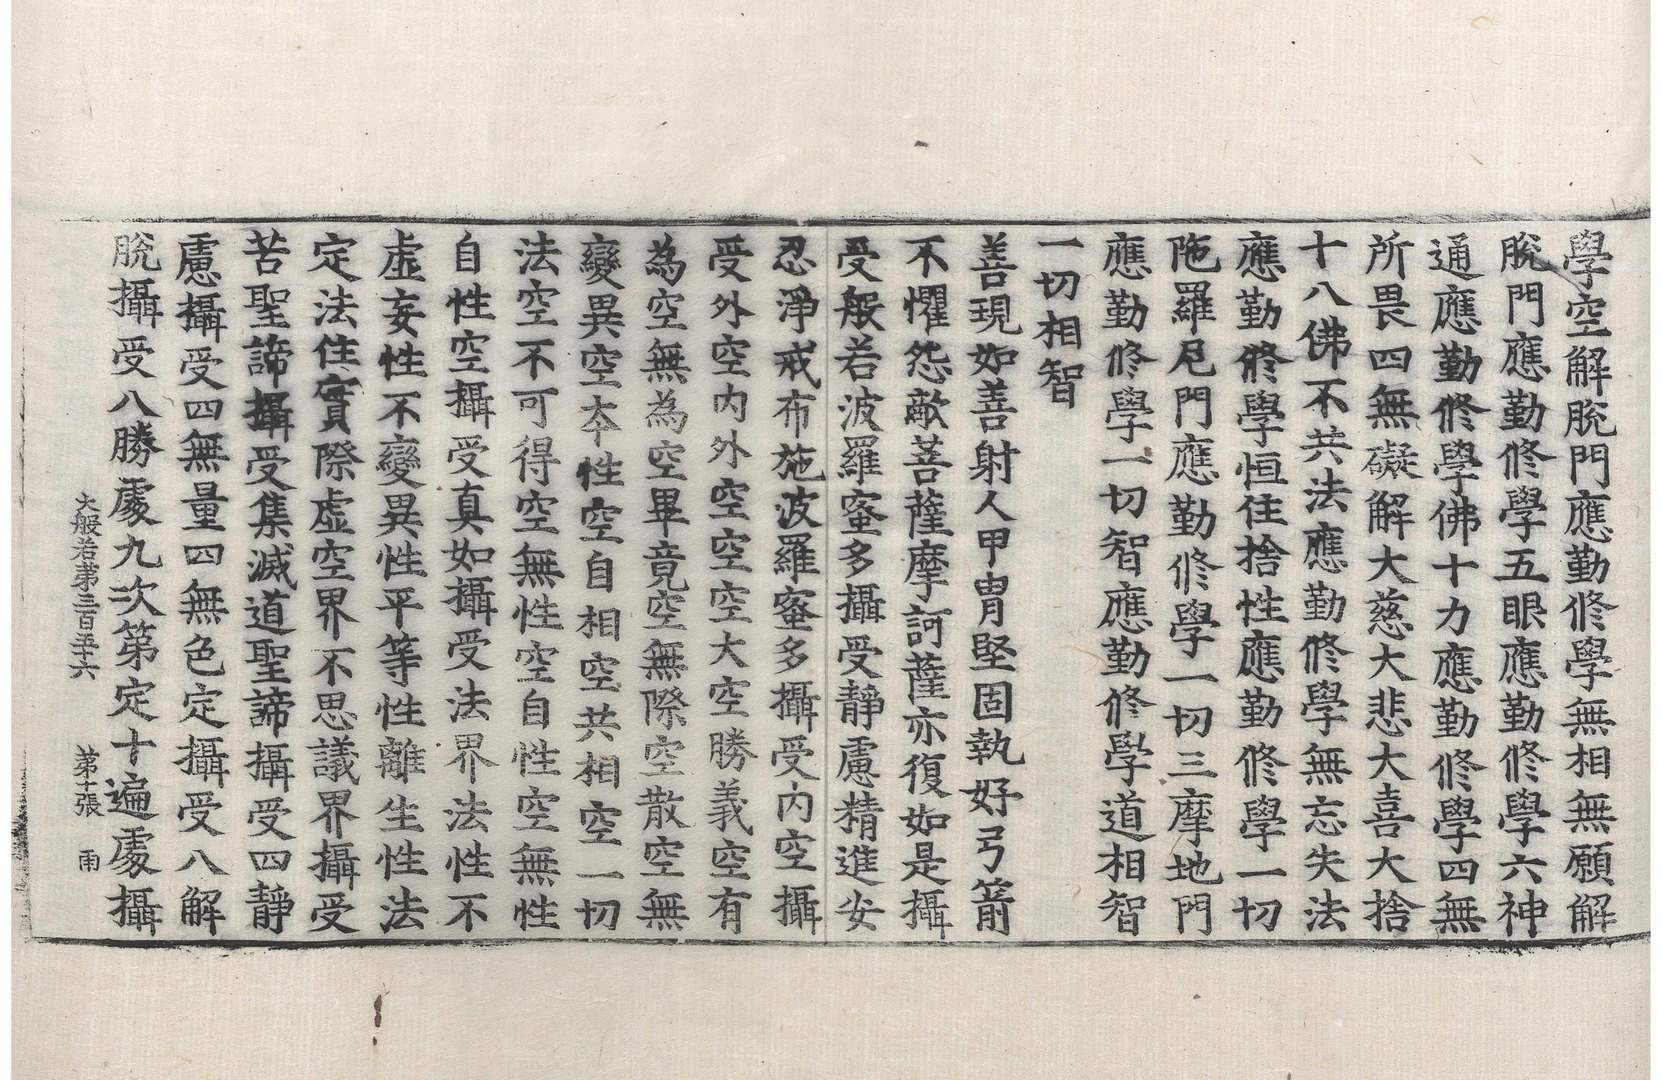 學空解脫門應勤修學無相無願解
脫門應勤修學五眼應勤修學六神
通應勤修學佛十力應勤修學四無
所畏四無礙解大慈大悲大喜大捨
十八佛不共法應勤修學無忘失法
應勤修學恒住捨性應勤修學一切
陁羅尼門應勤修學一切三摩地門
應勤修學一切智應勤修學道相智
一切相智
善現如善射人甲胄堅固執好弓箭
不懼怨敵菩薩摩訶薩亦復如是攝
受般若波羅蜜多攝受靜慮精進安
忍淨戒布施波羅蜜多攝受內空攝
受外空內外空空空大空勝義空有
為空無為空畢竟空無際空散空無
變異空本性空自相空共相空一切
法空不可得空無性空自性空無性
自性空攝受真如攝受法界法性不
虛妄性不變異性平等性離生性法
定法住實際虛空界不思議界攝受
苦聖諦攝受集滅道聖諦攝受四靜
慮攝受四無量四無色定攝受八解
脫攝受八勝處九次第定十遍處攝
大般若第三百五十六 第十張 雨